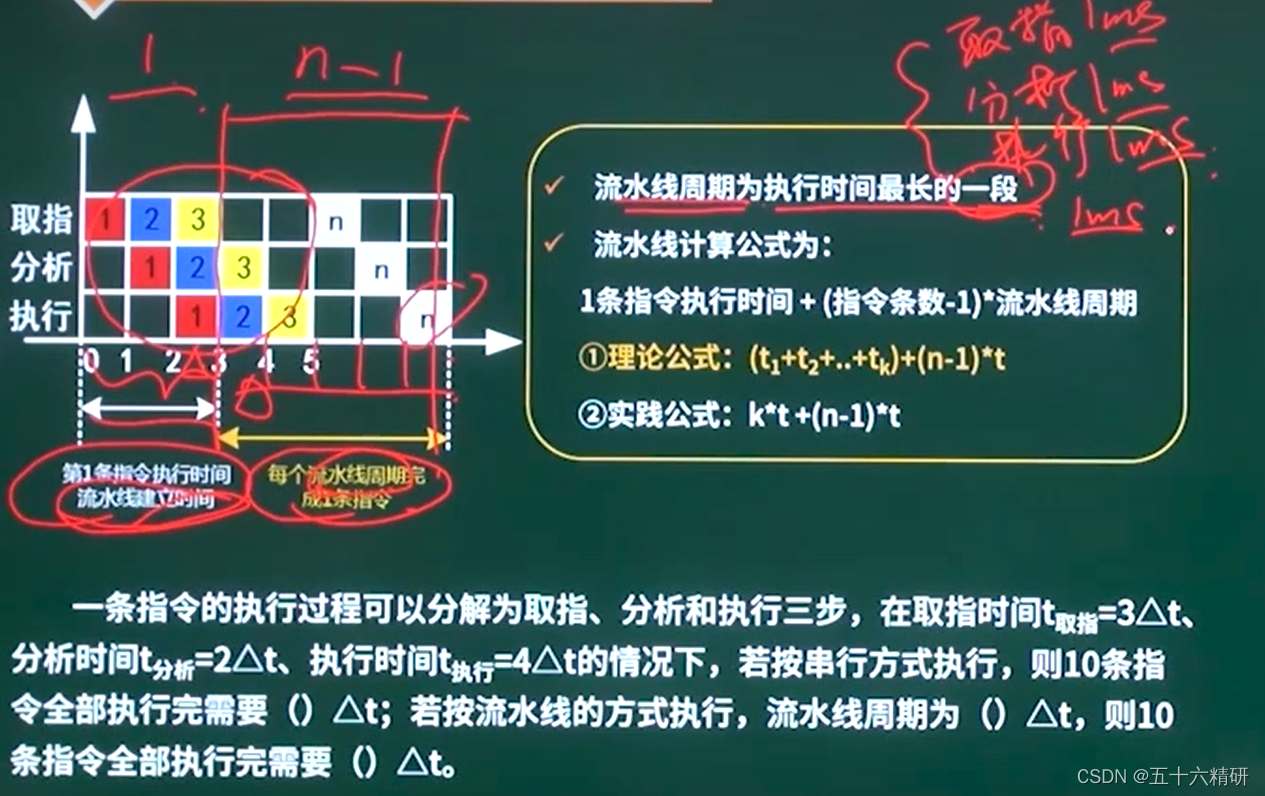 1
n-1
取指1ms
分析1ms
执行1ms
1ms
取指 1 2 3 n
分析 1 2 3 n
执行 1 2 3 n
0 1 2 3 4 5
第1条指令执行时间
流水线建立时间
每个流水线周期完
成1条指令
✓ 流水线周期为执行时间最长的一段
✓ 流水线计算公式为：
1条指令执行时间 + (指令条数-1)*流水线周期
①理论公式：(t₁+t₂+..+tₖ)+(n-1)*t
②实践公式：k*t +(n-1)*t
一条指令的执行过程可以分解为取指、分析和执行三步，在取指时间t取指=3△t、
分析时间t分析=2△t、执行时间t执行=4△t的情况下，若按串行方式执行，则10条指
令全部执行完需要（）△t；若按流水线的方式执行，流水线周期为（）△t，则10
条指令全部执行完需要（）△t。
CSDN @五十六精研